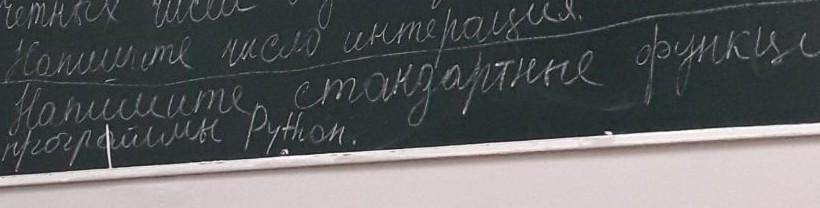 четных чисел
Напишите число интерация.
Напишите стандартные функци
программы Python.